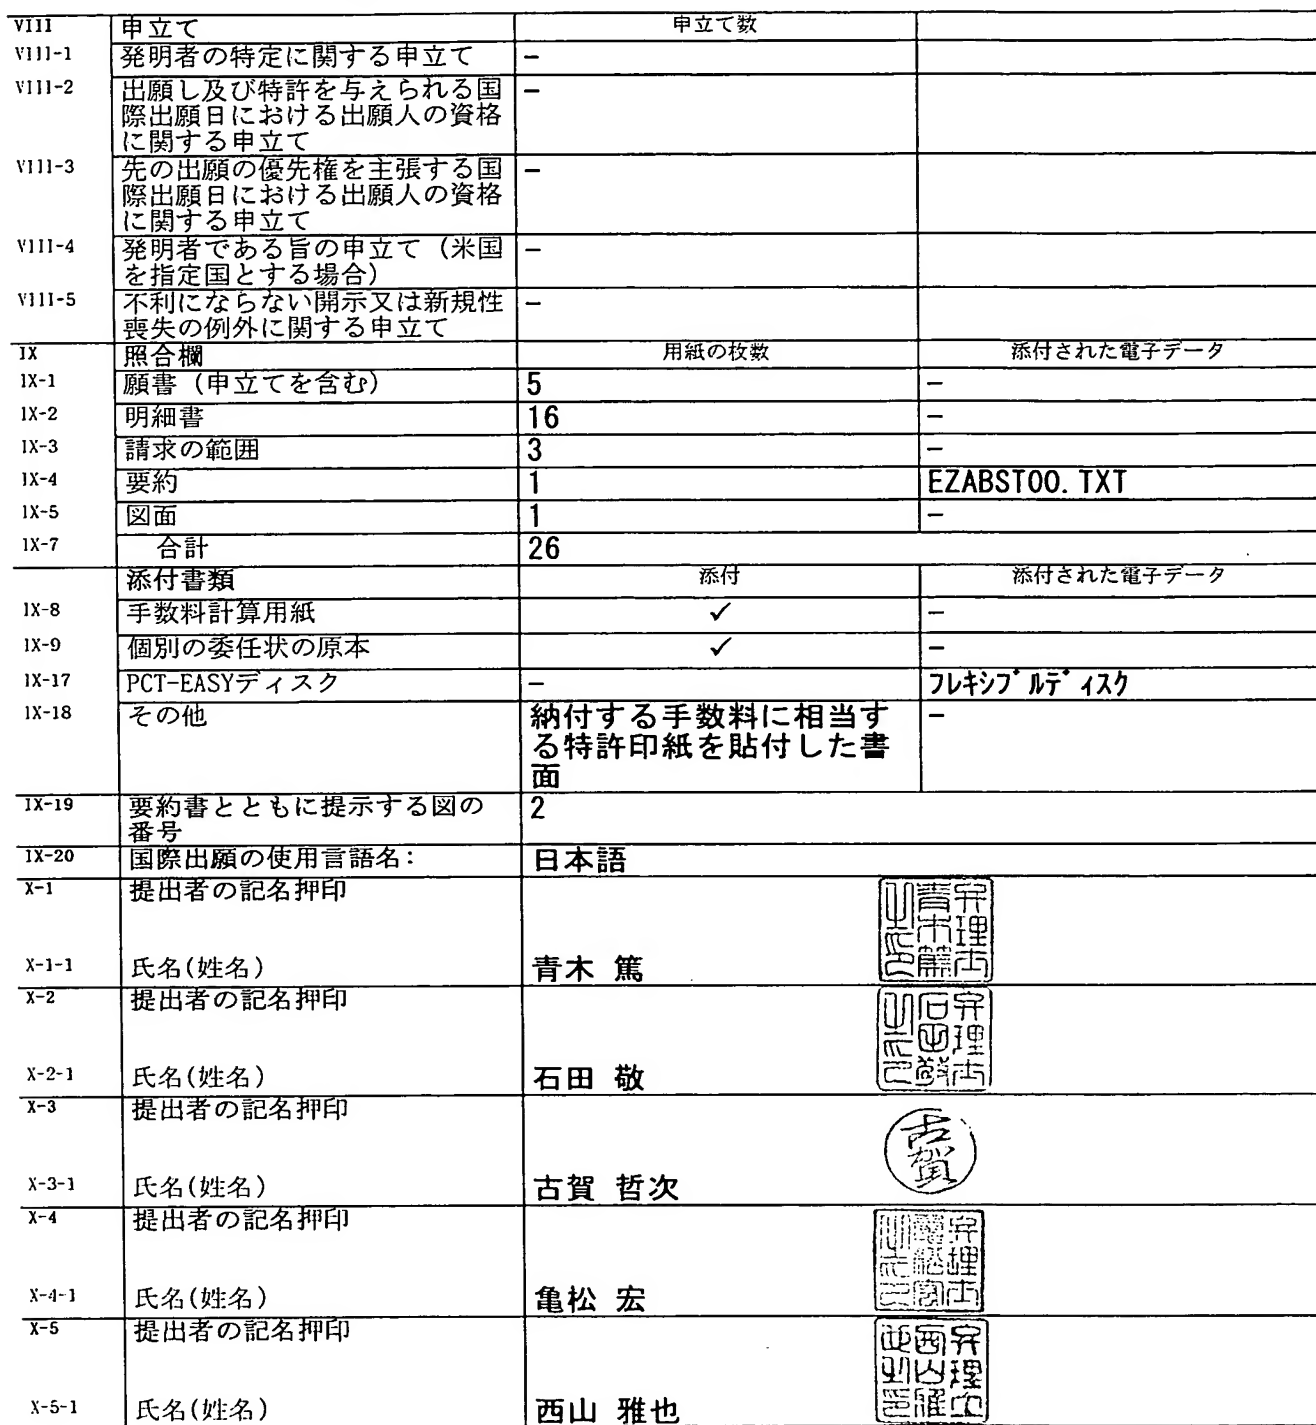 VIII 申立て 申立て数
VIII-1 発明者の特定に関する申立て -
VIII-2 出願し及び特許を与えられる国 -
際出願日における出願人の資格
に関する申立て
VIII-3 先の出願の優先権を主張する国 -
際出願日における出願人の資格
に関する申立て
VIII-4 発明者である旨の申立て（米国 -
を指定国とする場合）
VIII-5 不利にならない開示又は新規性 -
喪失の例外に関する申立て
IX 照合欄 用紙の枚数 添付された電子データ
IX-1 願書（申立てを含む） 5 -
IX-2 明細書 16 -
IX-3 請求の範囲 3 -
IX-4 要約 1 EZABST00.TXT
IX-5 図面 1 -
IX-7 合計 26
添付書類 添付 添付された電子データ
IX-8 手数料計算用紙 ✓ -
IX-9 個別の委任状の原本 ✓ -
IX-17 PCT-EASYディスク - フレキシブルディスク
IX-18 その他 納付する手数料に相当す -
る特許印紙を貼付した書
面
IX-19 要約書とともに提示する図の 2
番号
IX-20 国際出願の使用言語名： 日本語
X-1 提出者の記名押印
弁理士青木篤之印
X-1-1 氏名(姓名) 青木 篤
X-2 提出者の記名押印
弁理士石田敬之印
X-2-1 氏名(姓名) 石田 敬
X-3 提出者の記名押印
古賀
X-3-1 氏名(姓名) 古賀 哲次
X-4 提出者の記名押印
X-4-1 氏名(姓名) 亀松 宏
X-5 提出者の記名押印
X-5-1 氏名(姓名) 西山 雅也